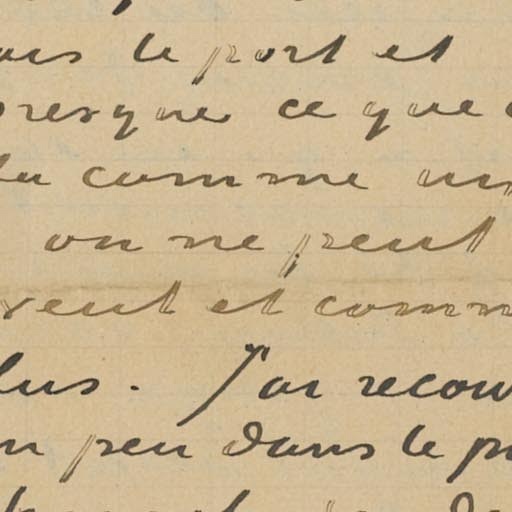 le port et
presque ce que
comme un
on ne peut
veut et comm
lus. J'ai recou
un peu dans le